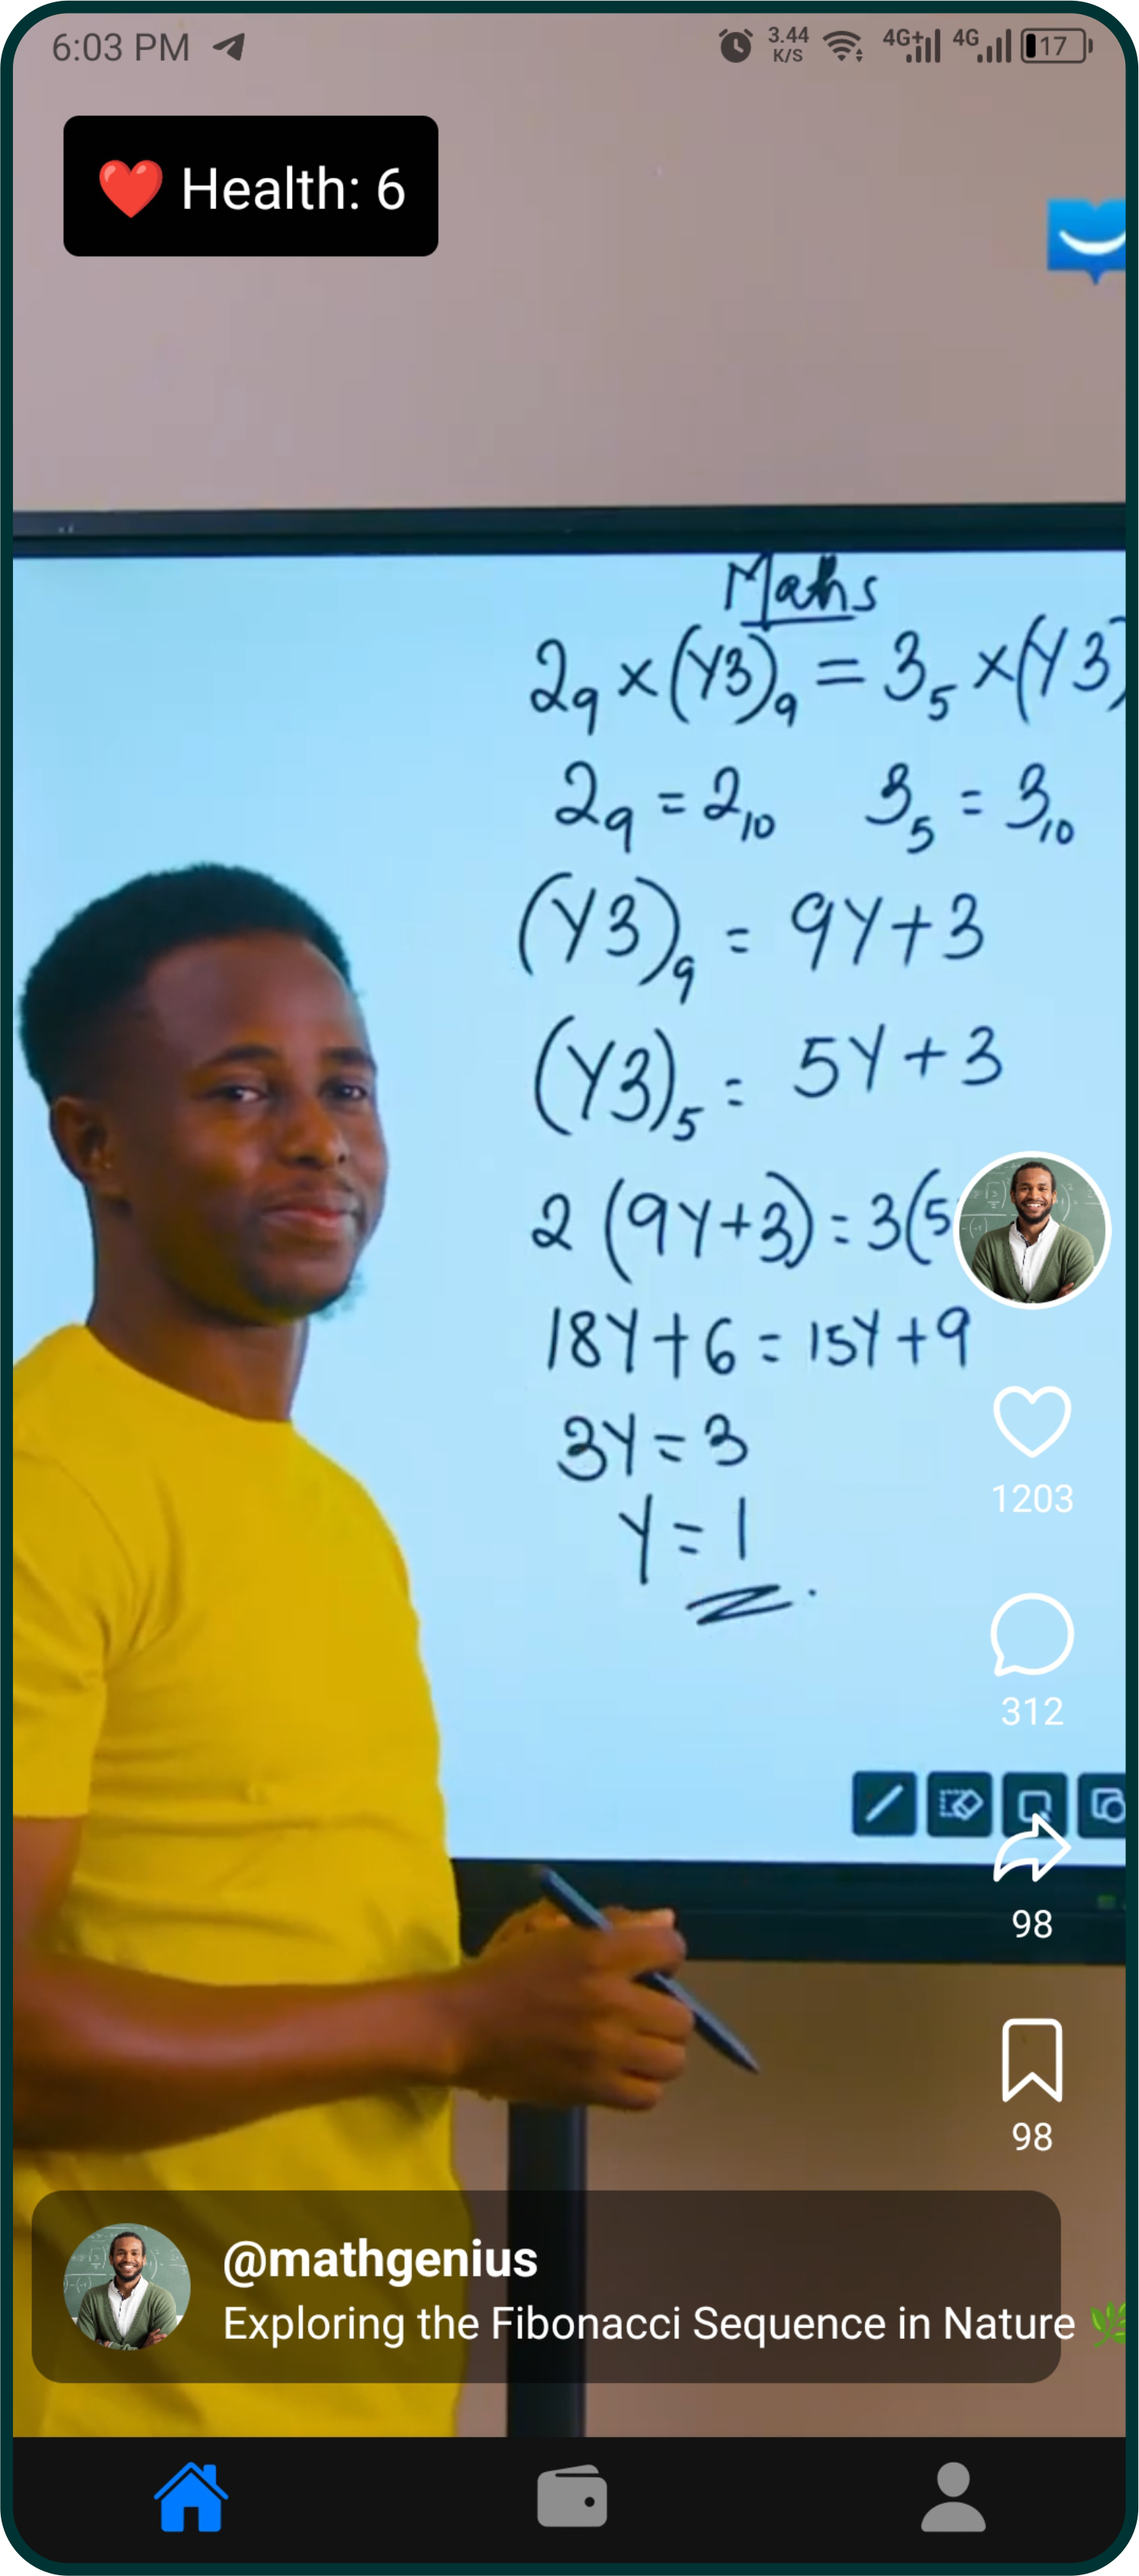 6:03 PM
3.44 K/S
4G+
4G
17
❤️ Health: 6
Mahs
2₉ × (Y3)₉ = 3₅ × (Y3)
2₉ = 2₁₀ 3₅ = 3₁₀
(Y3)₉ = 9Y+3
(Y3)₅ = 5Y+3
2(9Y+3) = 3(5
18Y+6 = 15Y+9
3Y = 3
Y = 1
1203
312
98
98
@mathgenius
Exploring the Fibonacci Sequence in Nature 🌿